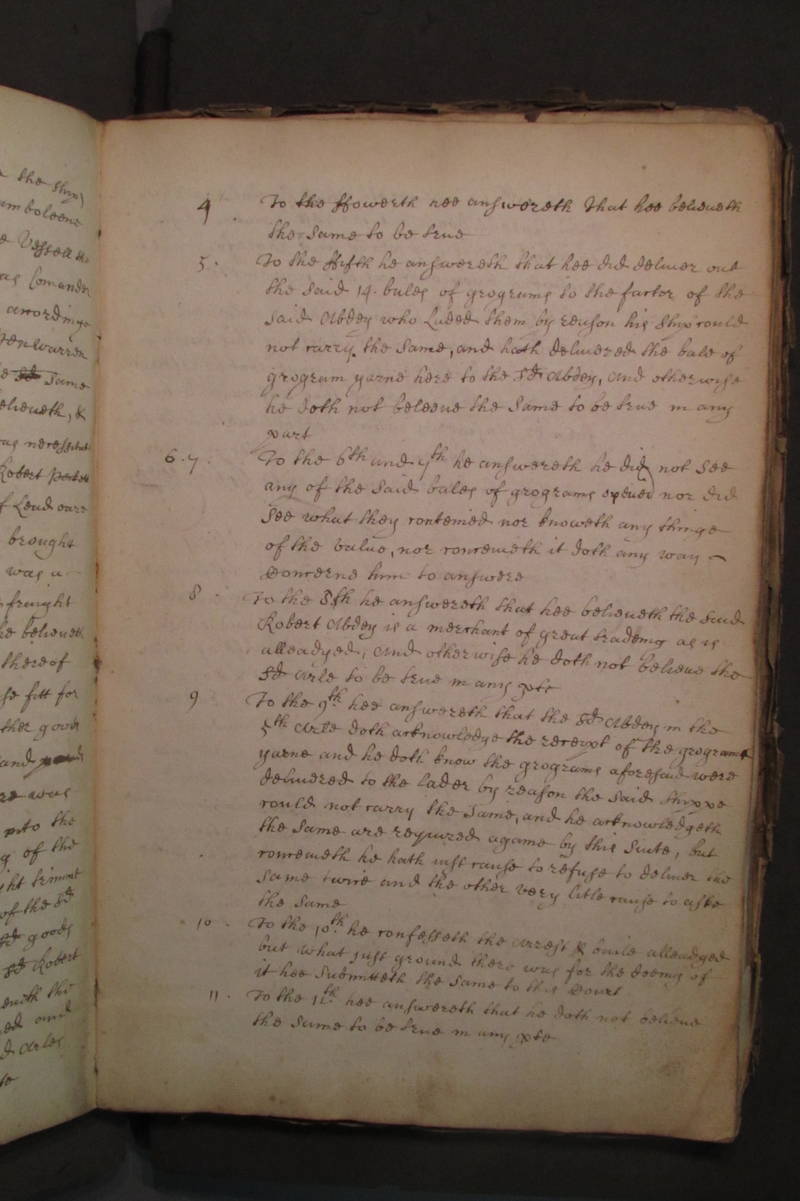 the shipp
e Vessell
as Comander
accordinge
same
believeth, &
Robert
of Lead oare
brought
was a
freight
he believeth
thereof
se fitt for
ther goods
and
was
into the
g of the
of the sd
sd goods
sd Robert
and
d Arles
4 To the ffowerth hee answereth that hee believeth
the same to be true
5. To the ffifth he answereth that hee did deliver out
the said 14. bales of grograms to the factor of the
said Abdey who Laded them by reason his shipp could
not carry the same, and hath delivered the bale of
grogram yarne here to the sd Abdey, and otherwise
he doth not beleeve the same to be true in any
part
6. 7. To the 6th and 7th he answereth he did not see
any of the said bales of grograms opened nor did
see what they conteined nor knoweth any thinge
of the value, nor conceiveth it doth any way
Concerne him to answere
8. To the 8th he answereth that hee believeth the said
Robert Abdey is a merchant of great tradeing as is
alleadged, and otherwise he doth not believe the
sd Arle to be true in any pte
9 To the 9th hee answereth that the sd Abdey in the
5th Arle doth acknowledge the receipt of the grogram
yarne and he doth know the grograms aforesaid were
delivered to the lader by reason the said shippe
could not carry the same, and he acknowledgeth
the same are required againe by this suite, but
conceiveth he hath just cause to refuse to deliver the
same twice and the other very litle cause to aske
the same
10. To the 10th he confesseth the arrest & baile alleadged
but what just ground there was for the doeing of
it hee submitteth the same to this Court
11. To the 11th hee answereth that he doth not believe
the same to be true in any pte